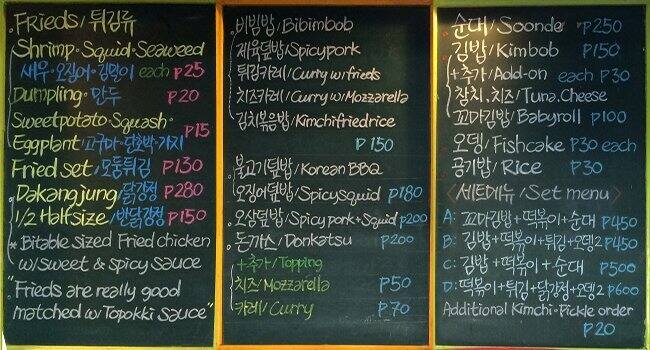 Frieds/튀김류
Shrimp·Squid·Seaweed
새우·오징어·김말이 each ₱25
Dumpling·만두 ₱20
Sweetpotato·Squash·
Eggplant/고구마·단호박·가지 ₱15
Fried set/모둠튀김 ₱130
Dakangjung/닭강정 ₱280
1/2 Halfsize/반닭강정 ₱150
* Bitable sized Fried chicken
w/sweet & spicy sauce
"Frieds are really good
matched w/Topokki sauce"
비빔밥/Bibimbob
제육덮밥/Spicypork
튀김카레/Curry w/frieds
치즈카레/Curry w/Mozzarella
김치볶음밥/Kimchifriedrice
₱150
불고기덮밥/Korean BBQ
오징어덮밥/Spicysquid ₱180
오삼덮밥/Spicy pork+Squid ₱200
돈가스/Donkatsu ₱200
+추가/Topping
치즈/Mozzarella ₱50
카레/Curry ₱70
순대/Soonde ₱250
김밥/Kimbob ₱150
+추가/Add-on each ₱30
참치,치즈/Tuna.Cheese
꼬마김밥/Babyroll ₱100
오뎅/Fishcake ₱30 each
공기밥/Rice ₱30
<세트메뉴/Set menu>
A: 꼬마김밥+떡볶이+순대 ₱450
B: 김밥+떡볶이+튀김+오뎅2 ₱450
C: 김밥+떡볶이+순대 ₱500
D: 떡볶이+튀김+닭강정+오뎅2 ₱600
Additional Kimchi·Pickle order
₱20